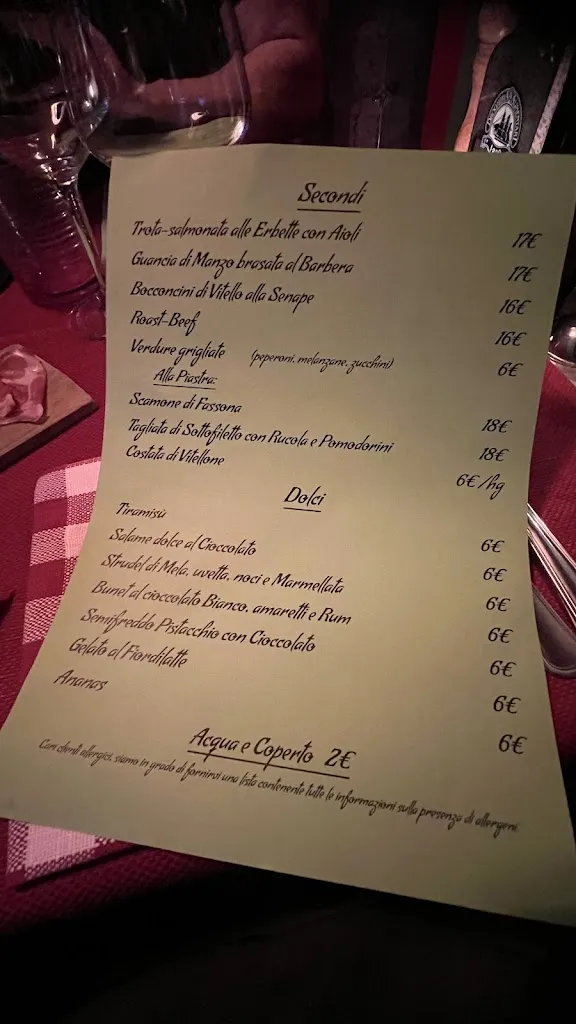 Secondi
Trota-salmonata alle Erbette con Aioli 17€
Guancia di Manzo brasata al Barbera 17€
Bocconcini di Vitello alla Senape 16€
Roast-Beef 16€
Verdure grigliate (peperoni, melanzane, zucchini) 6€
Alla Piastra:
Scamone di Fassona 18€
Tagliata di Sottofiletto con Rucola e Pomodorini 18€
Costata di Vitellone 6€/hg
Dolci
Tiramisù 6€
Salame dolce al Cioccolato 6€
Strudel di Mela, uvetta, noci e Marmellata 6€
Bunet al cioccolato Bianco, amaretti e Rum 6€
Semifreddo Pistacchio con Cioccolato 6€
Gelato al Fiordilatte 6€
Ananas 6€
Acqua e Coperto 2€
Cari clienti allergici, siamo in grado di fornirvi una lista contenente tutte le informazioni sulla presenza di allergeni.